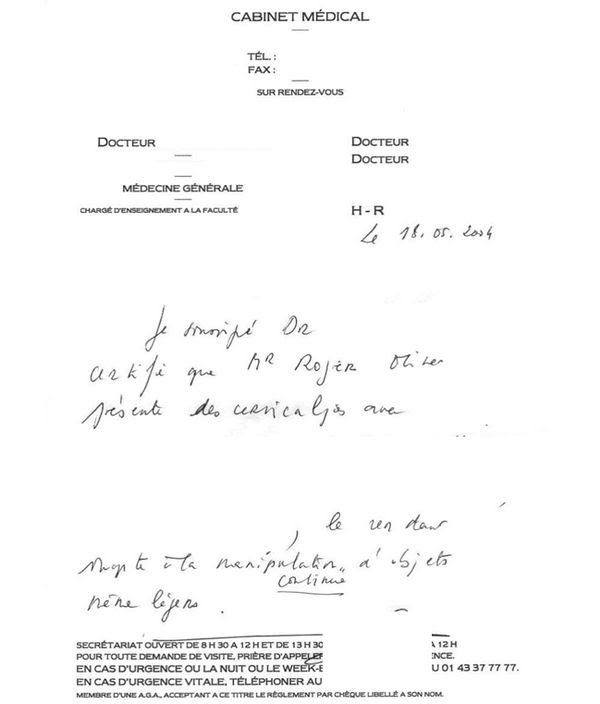 CABINET MÉDICAL
TÉL. :
FAX :
SUR RENDEZ-VOUS
DOCTEUR
DOCTEUR
DOCTEUR
MÉDECINE GÉNÉRALE
CHARGÉ D'ENSEIGNEMENT A LA FACULTÉ
H - R
Le 18. 05. 2004
Je soussigné DR
certifie que MR ROGER Olivier
présente des cervicalgies avec
, le rendant
inapte à la manipulation d'objets
continue
même légers.
SECRÉTARIAT OUVERT DE 8 H 30 A 12 H ET DE 13 H 30 A 12 H
POUR TOUTE DEMANDE DE VISITE, PRIÈRE D'APPELER NCE.
EN CAS D'URGENCE OU LA NUIT OU LE WEEK-E U 01 43 37 77 77.
EN CAS D'URGENCE VITALE, TÉLÉPHONER AU
MEMBRE D'UNE A.G.A., ACCEPTANT A CE TITRE LE RÈGLEMENT PAR CHÈQUE LIBELLÉ A SON NOM.